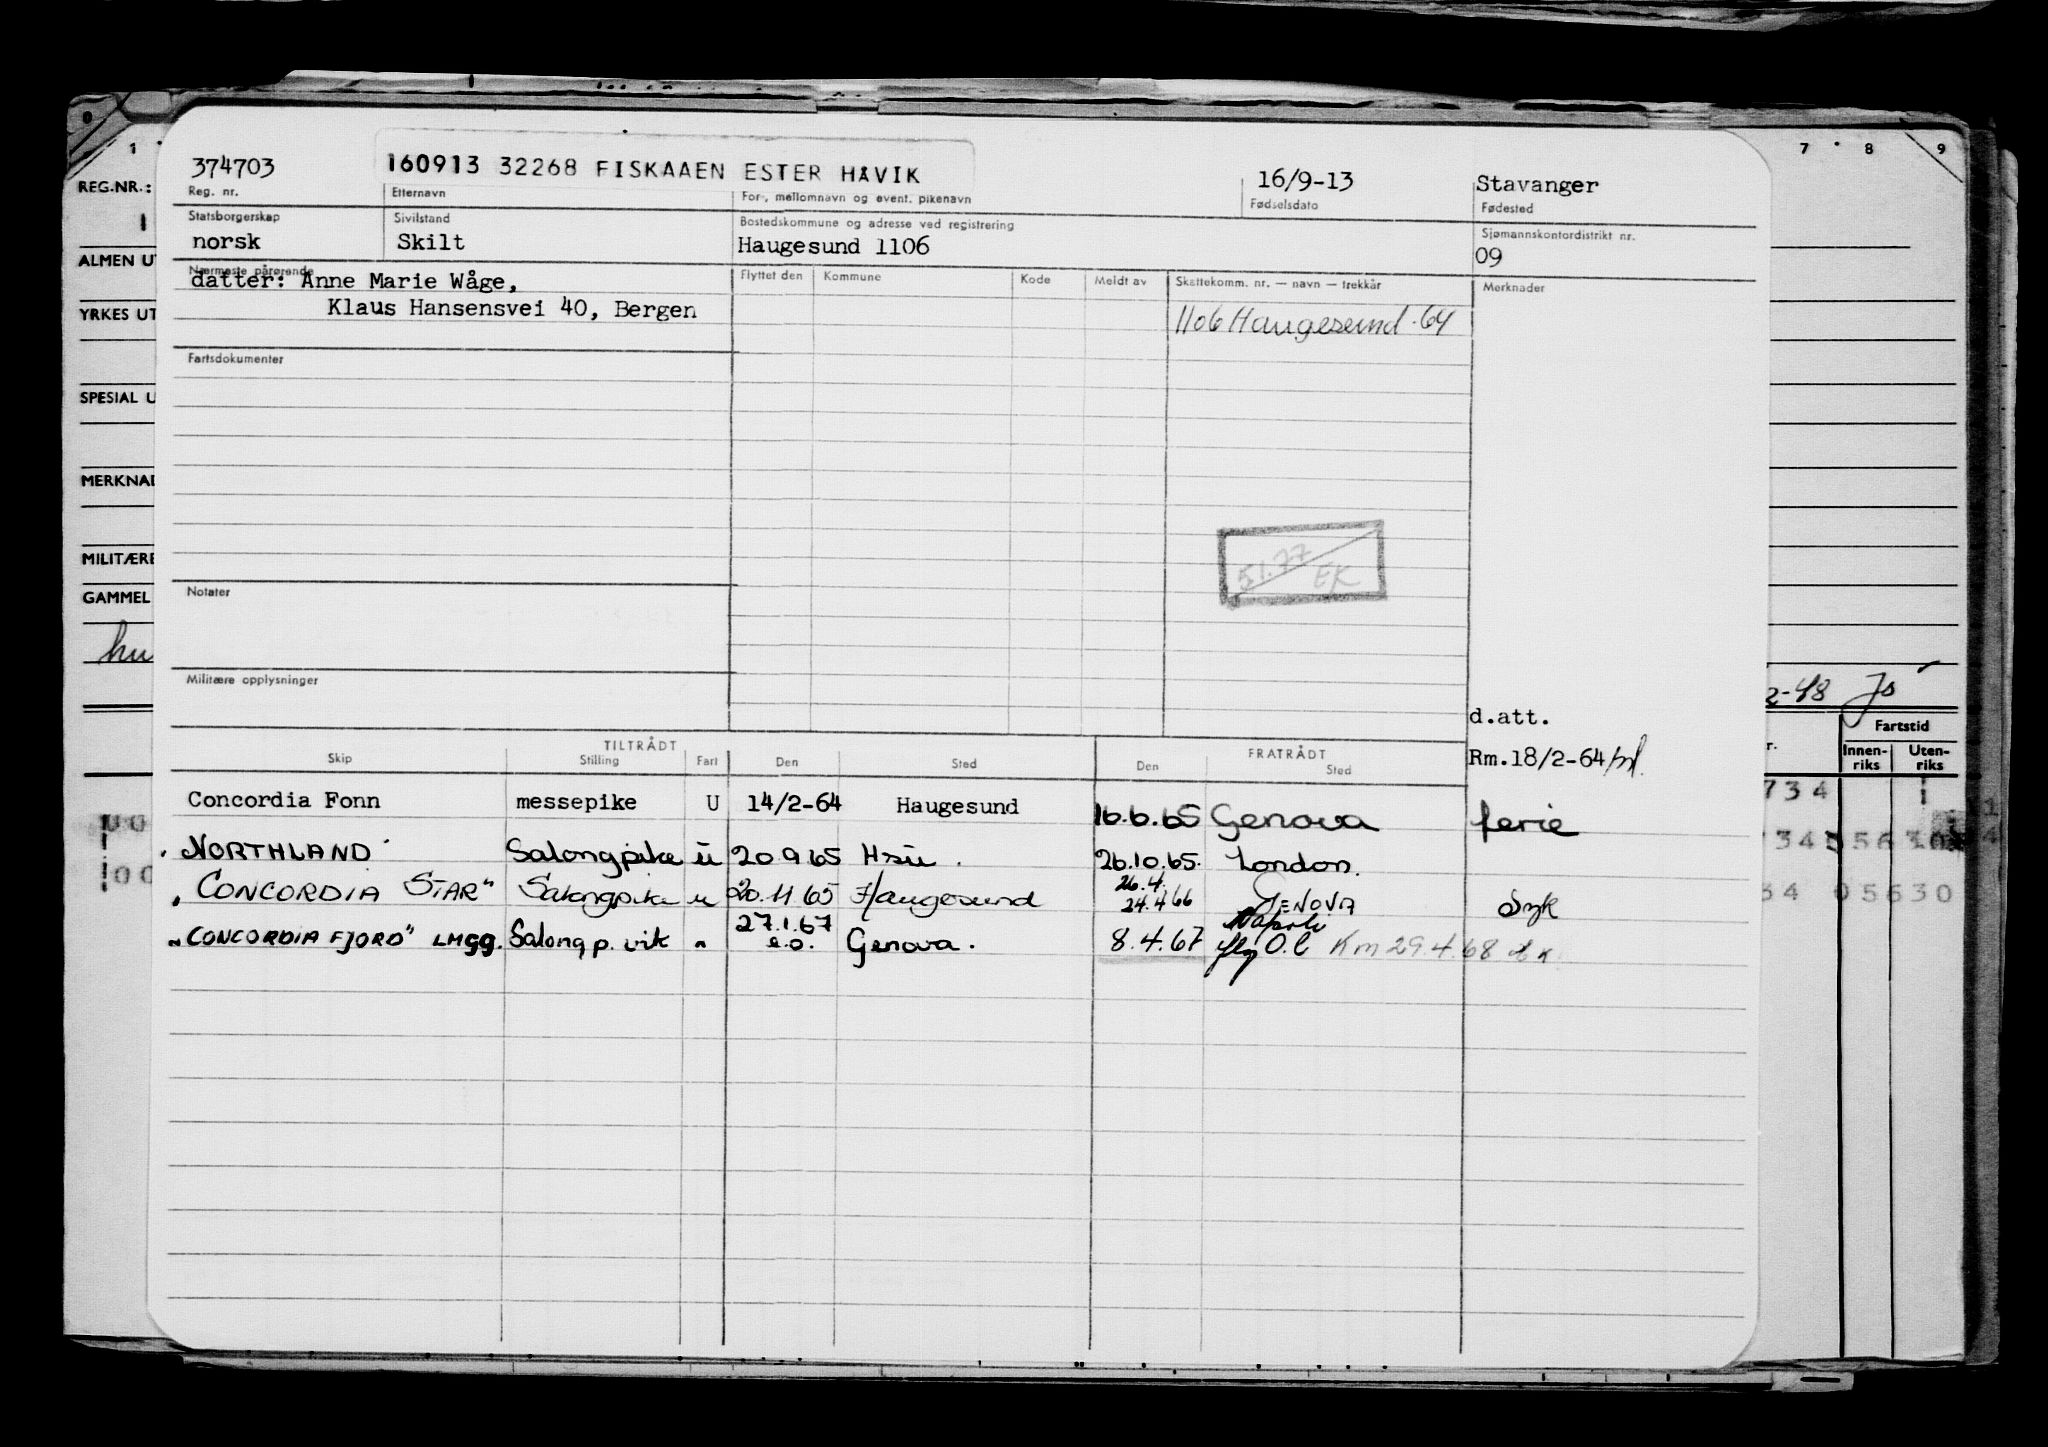 0
1
7 8 9
REG.NR.:
ALMEN UT
YRKES UT
SPESIAL U
MERKNAD
MILITÆRE
GAMMEL
374703
160913 32268 FISKAAEN ESTER HAVIK
16/9-13
Stavanger
Reg. nr.
Etternavn
For-, mellomnavn og event. pikenavn
Fødselsdato
Fødested
Statsborgerskap
Sivilstand
Bostedskommune og adresse ved registrering
Sjømannskontordistrikt nr.
norsk
Skilt
Haugesund 1106
09
Nærmeste pårørende
Flyttet den
Kommune
Kode
Meldt av
Skattekomm. nr. — navn — trekkår
Merknader
datter: Anne Marie Wåge,
Klaus Hansensvei 40, Bergen
1106 Haugesund. 64
Fartsdokumenter
51.77
EK
Notater
Militære opplysninger
d.att.
Rm.18/2-64
TILTRÅDT
FRATRÅDT
Skip
Stilling
Fart
Den
Sted
Den
Sted
Concordia Fonn messepike U 14/2-64 Haugesund 16.6.65 Genova ferie
NORTHLAND Salongpike u 20.9.65 Hsu. 26.10.65. London.
"CONCORDIA STAR" Salongpike u 20.11.65 Haugesund 26.4. 24.4.66 GENOVA Syk
"CONCORDIA FJORD" LMGG. Salong p. vik " 27.1.67 e.o. Genova. 8.4.67 Napoli fly O.l Km 29.4.68
2-48
Fartstid
r.
Innen-
riks
Uten-
riks
734
34 05630
34 05630